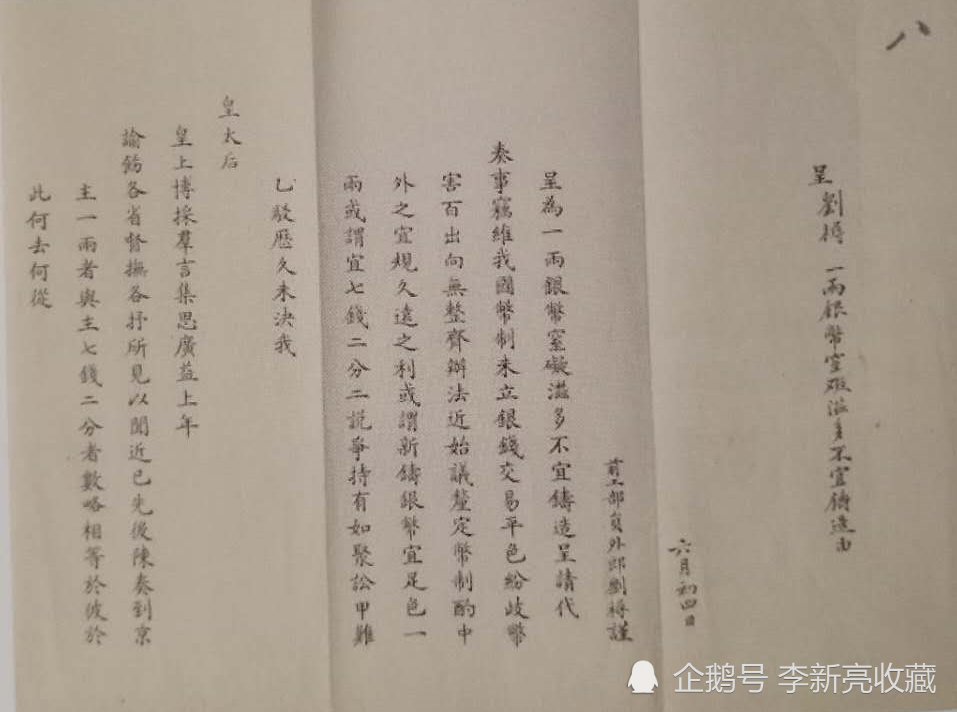 八
呈劉榑 一兩銀幣窒碍滋多不宜鑄造由
六月初四日
前工部員外郎劉榑謹
呈為一兩銀幣窒礙滋多不宜鑄造呈請代
奏事竊維我國幣制未立銀錢交易平色紛歧幣
害百出向無整齊辦法近始議釐定幣制酌中
外之宜規久遠之利或謂新鑄銀幣宜足色一
兩或謂宜七錢二分二說爭持有如聚訟甲難
乙駁歷久未決我
皇太后
皇上博採羣言集思廣益上年
諭飭各省督撫各抒所見以聞近已先後陳奏到京
主一兩者與主七錢二分者數略相等於彼於
此何去何從
企鹅号 李新亮收藏